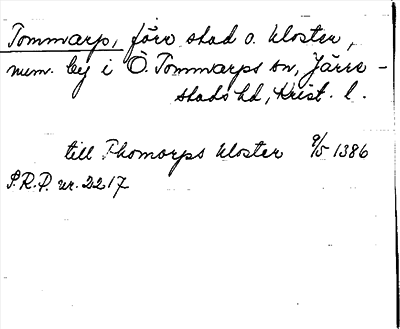 Tommarp, förr stad o. kloster,
num. by i Ö. Tommarps sn, Järre-
stads hd, Krist. l.
till Thomorps kloster 9/5 1386
S.R.P. nr. 2217